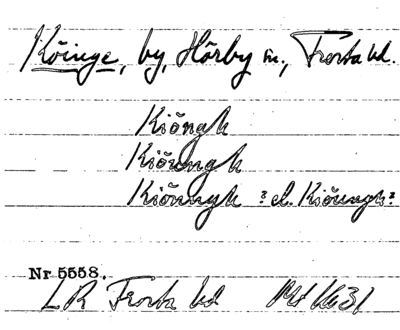 Köinge, by, Hörby sn., Frosta hd.
Kiöngh
Kiöungh
Kiöunyh ? el. Kiöungh?
Nr 5558.
LR Frosta hd Ml 1631